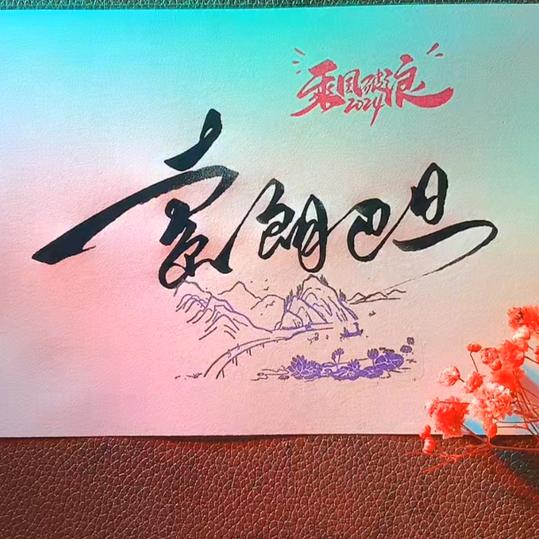 乘风破浪
2024
索朗巴旦